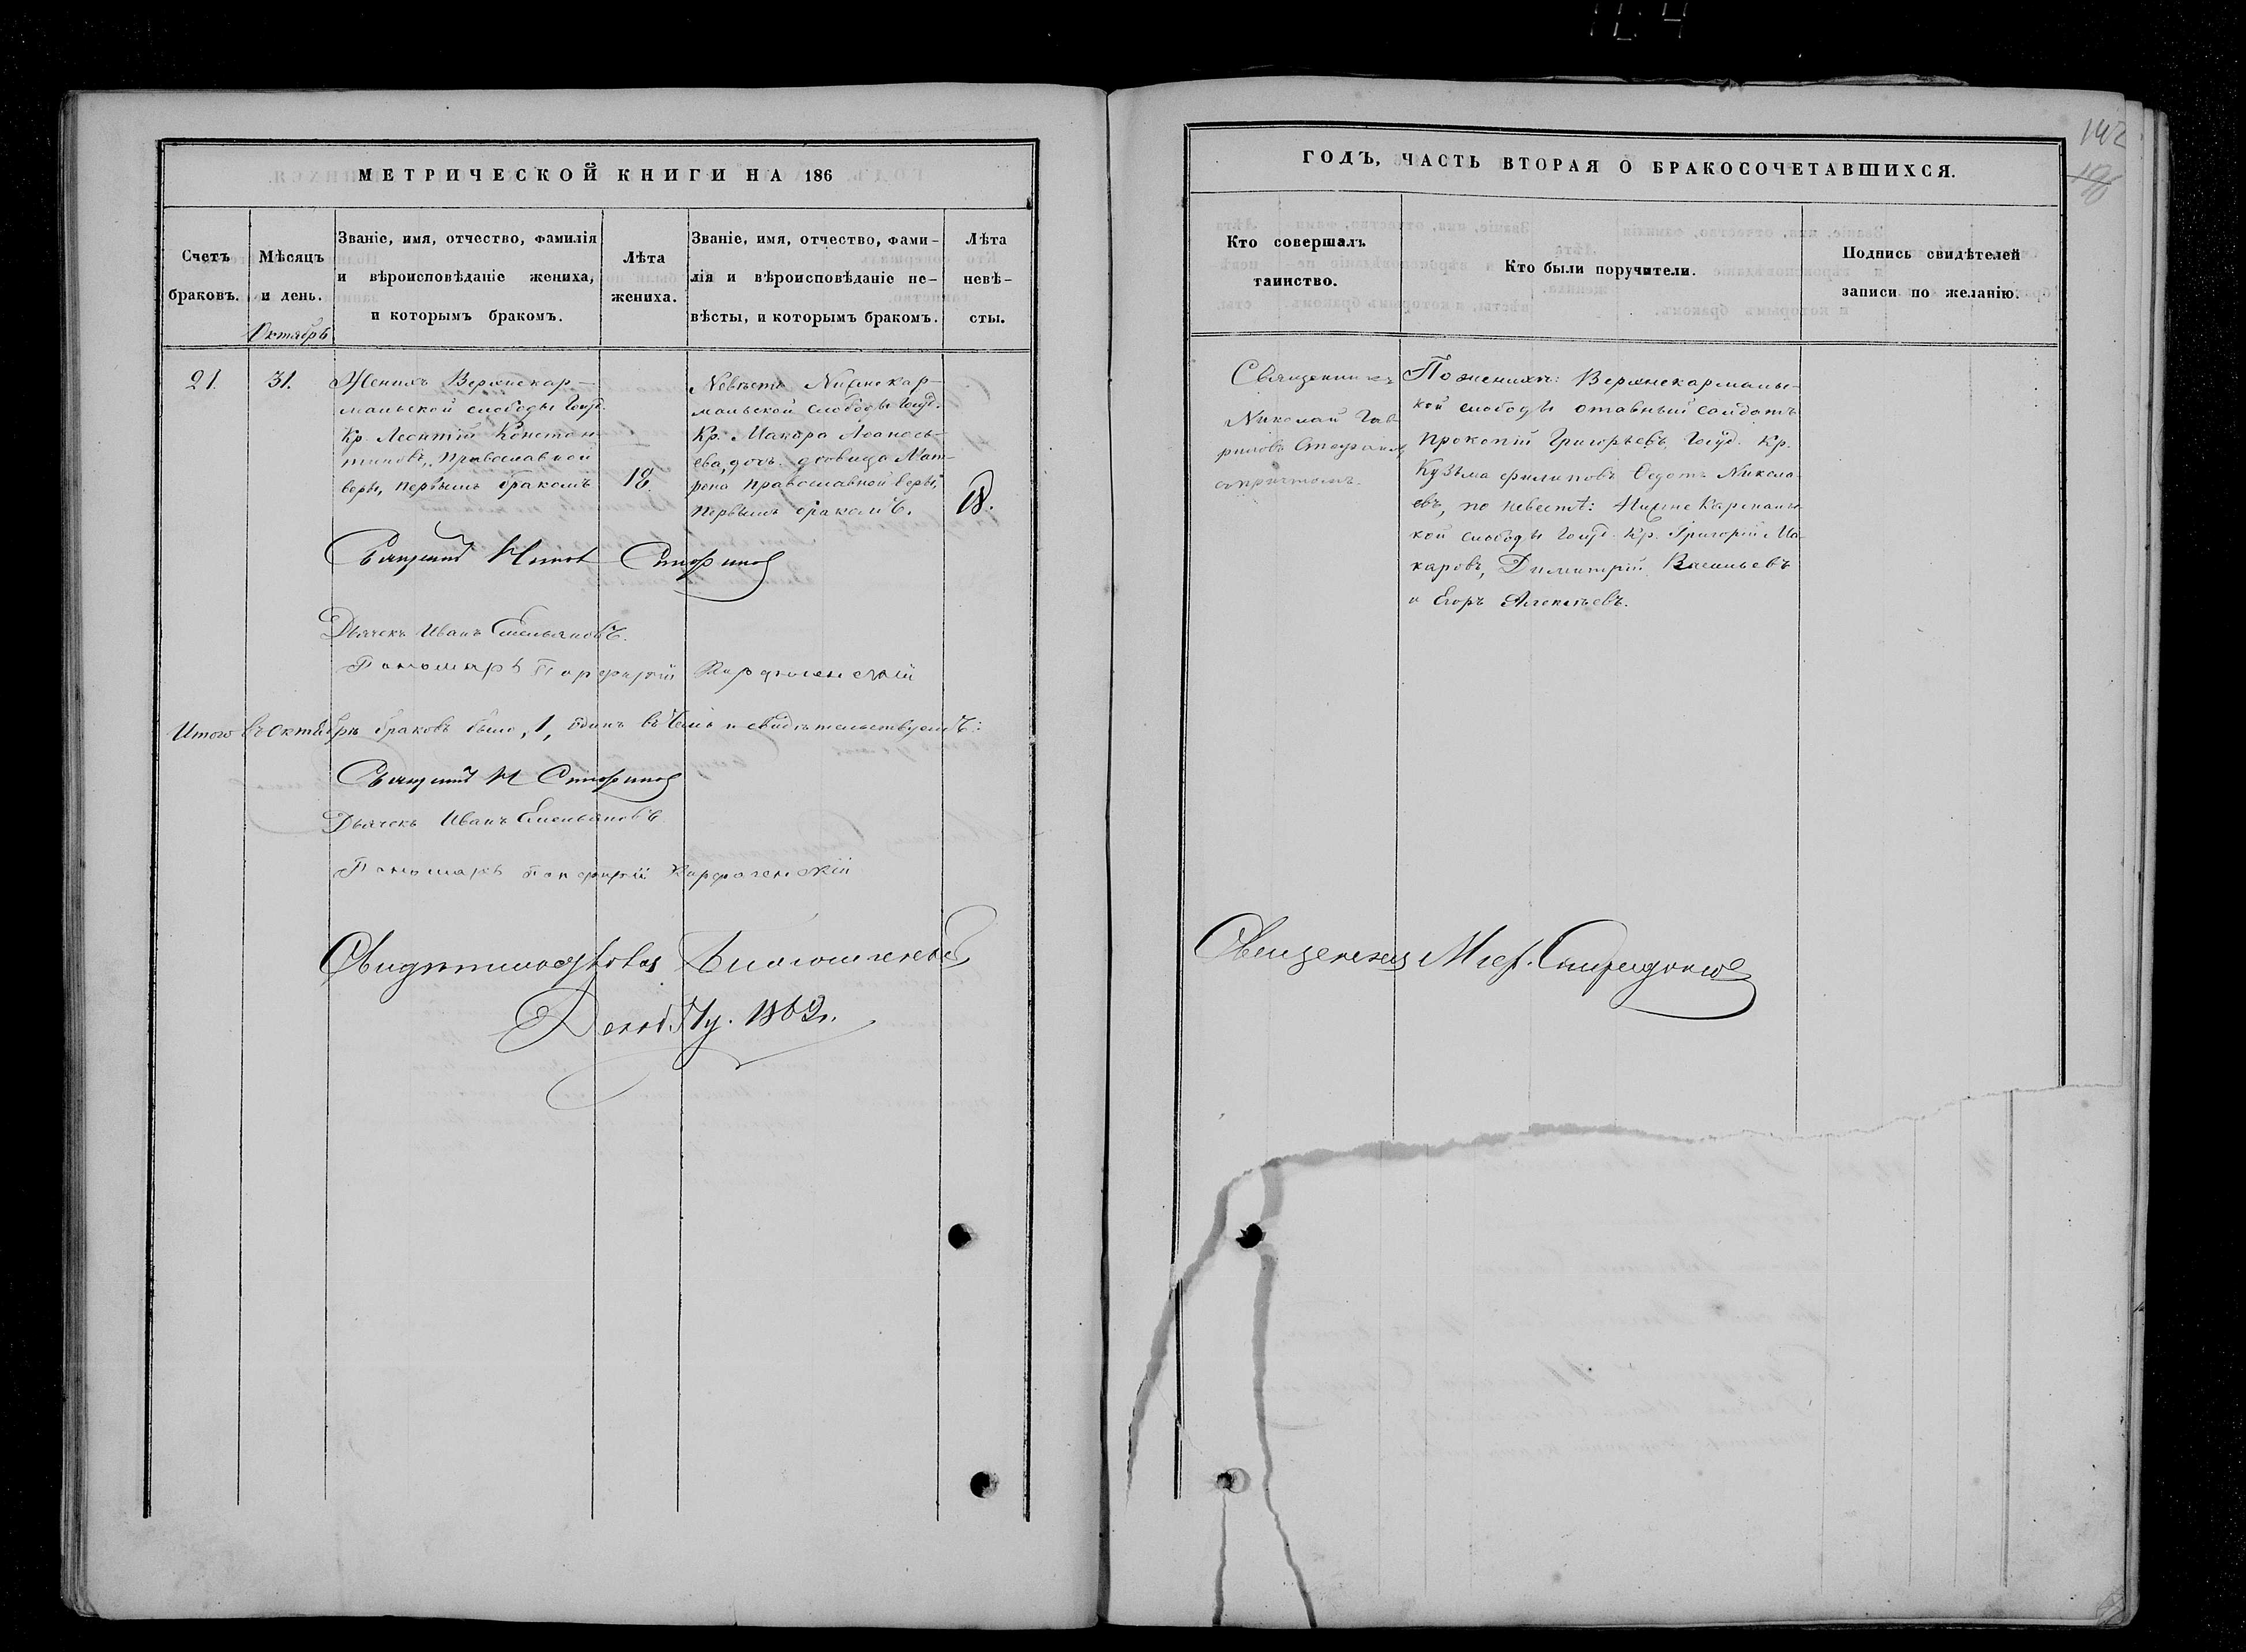 МЕТРИЧЕСКОЙ КНИГИ НА 186
Счетъ браковъ.
Мѣсяцъ и день.
Октябрь
Званіе, имя, отчество, фамилія
и вѣроисповѣданіе жениха,
и которымъ бракомъ.
Лѣта жениха.
Званіе, имя, отчество, фами-
лія и вѣроисповѣданіе не-
вѣсты, и которымъ бракомъ.
Лѣта невѣ-
сты.
21.
31.
Женихъ Верхнекар-
маньской слободы Госуд.
Кр. Леонтій Констан-
тиновъ, православной
веры, первымъ бракомъ
18.
Невѣста Нижнекар-
маньской слободы Госуд.
Кр. Макара Аѳанось-
ева, дочь девица Мат-
рона православной веры,
первымъ бракомъ.
18.
Дьячекъ Иванъ Емельяновъ.
Пономарь Порфирій
Итого въ Октябрѣ браковъ было, 1, одинъ въ чемъ и свидѣтельствуемъ:
Дьячекъ Иванъ Емельяновъ
Пономарь Порфирій
1862г.
ГОДЪ, ЧАСТЬ ВТОРАЯ О БРАКОСОЧЕТАВШИХСЯ.
142
Кто совершалъ
таинство.
Кто были поручители.
Подпись свидѣтелей
записи по желанію.
Священникъ
Николай Гав-
риловъ
съ причтомъ.
По женихѣ: Верхнекармань-
кой слободы отавный солдатъ
Прокопій Григорьевъ, Госуд. Кр.
Кузьма Филиповъ Ѳедотъ Никола-
евъ, по невестѣ: Нижнекармань-
кой слободы Госуд. Кр. Григорій Ма-
каровъ, Димитрій Васильевъ
и Егоръ Алексѣевъ.
Священникъ